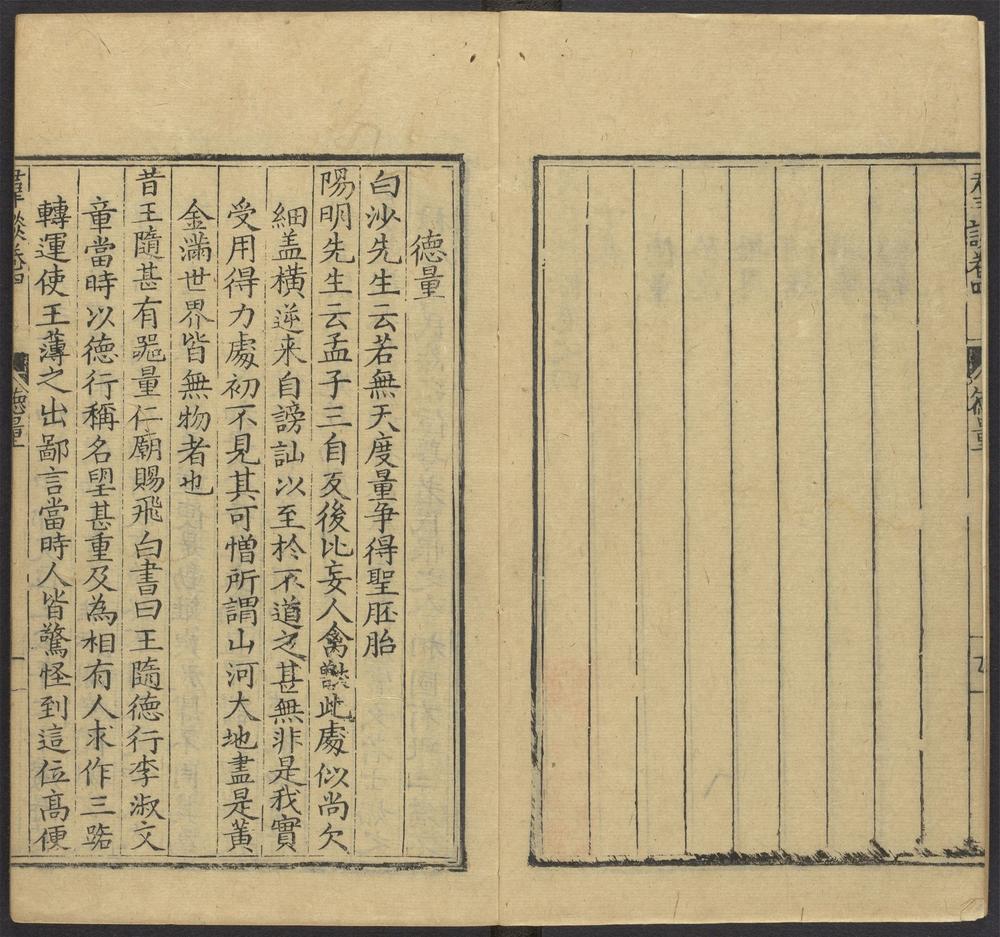 德量
白沙先生云若無天度量爭得聖胚胎
陽明先生云孟子三自反後比妄人禽獸此處似尚欠
細盖橫逆来自謗訕以至於不道之甚無非是我實
受用得力處初不見其可憎所謂山河大地盡是黃
金滿世界皆無物者也
昔王隨甚有噐量仁廟賜飛白書曰王隨德行李淑文
章當時以德行稱名望甚重及為相有人求作三路
轉運使王薄之出鄙言當時人皆驚怪到這位高便
卷四
德量